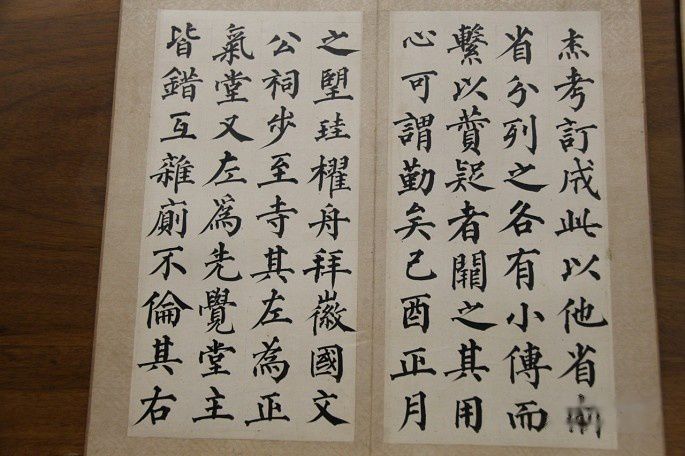 杰考訂成此以他省
省分列之各有小傳而
繫以贊疑者闕之其用
心可謂勤矣己酉正月
之朢珪櫂舟拜徽國文
公祠步至寺其左為正
氣堂又左爲先覺堂主
皆錯互雜廁不倫其右